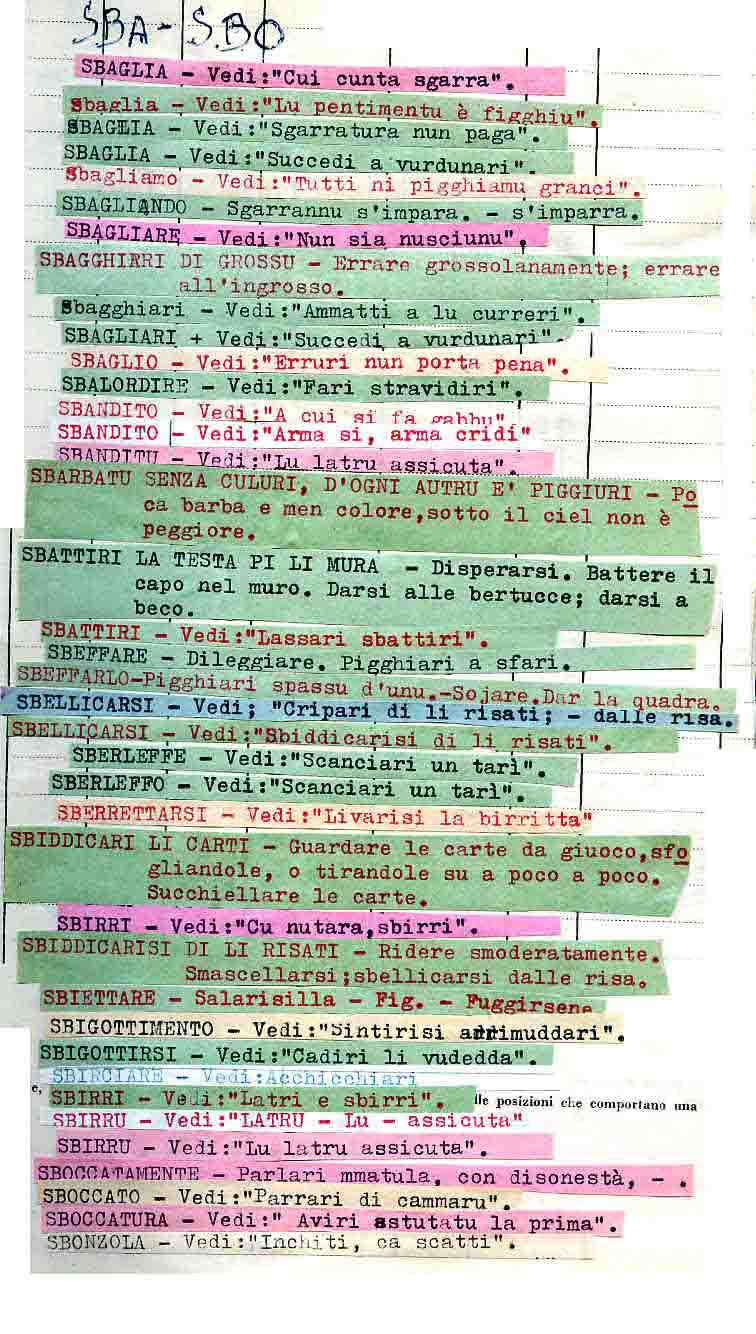 SBA - SBO
SBAGLIA - Vedi:"Cui cunta sgarra".
Sbaglia - Vedi:"Lu pentimentu è figghiu".
SBAGLIA - Vedi:"Sgarratura nun paga".
SBAGLIA - Vedi:"Succedi a vurdunari".
Sbagliamo - Vedi:"Tutti ni pigghiamu granci".
SBAGLIANDO - Sgarrannu s'impara. - s'imparra.
SBAGLIARE - Vedi:"Nun sia nusciunu".
SBAGGHIARI DI GROSSU - Errare grossolanamente; errare
all'ingrosso.
Sbagghiari - Vedi:"Ammatti a lu curreri".
SBAGLIARI + Vedi:"Succedi a vurdunari".
SBAGLIO - Vedi:"Erruri nun porta pena".
SBALORDIRE - Vedi:"Fari stravidiri".
SBANDITO - Vedi:"A cui si fa gabbu"
SBANDITO - Vedi:"Arma si, arma cridi"
SBANDITU - Vedi:"Lu latru assicuta".
SBARBATU SENZA CULURI, D'OGNI AUTRU E' PIGGIURI - Po
ca barba e men colore,sotto il ciel non è
peggiore.
SBATTIRI LA TESTA PI LI MURA - Disperarsi. Battere il
capo nel muro. Darsi alle bertucce; darsi a
beco.
SBATTIRI - Vedi:"Lassari sbattiri".
SBEFFARE - Dileggiare. Pigghiari a sfari.
SBEFFARLO-Pigghiari spassu d'unu.-Sojare.Dar la quadra.
SBELLICARSI - Vedi; "Cripari di li risati; - dalle risa.
SBELLICARSI - Vedi:"Sbiddicarisi di li risati".
SBERLEFFE - Vedi:"Scanciari un tarì".
SBERLEFFO - Vedi:"Scanciari un tarì".
SBERRETTARSI - Vedi:"Livarisi la birritta"
SBIDDICARI LI CARTI - Guardare le carte da giuoco,sfo
gliandole, o tirandole su a poco a poco.
Succhiellare le carte.
SBIRRI - Vedi:"Cu nutara,sbirri".
SBIDDICARISI DI LI RISATI - Ridere smoderatamente.
Smascellarsi;sbellicarsi dalle risa.
SBIETTARE - Salarisilla - Fig. - Fuggirsene
SBIGOTTIMENTO - Vedi:"Sintirisi arrimuddari".
SBIGOTTIRSI - Vedi:"Cadiri li vudedda".
SBIRCIARE - Vedi:Acchicchiari
e, SBIRRI - Vedi:"Latri e sbirri". lle posizioni che comportano una
SBIRRU - Vedi:"LATRU - Lu - assicuta"
SBIRRU - Vedi:"Lu latru assicuta".
SBOCCATAMENTE - Parlari mmatula, con disonestà, - .
SBOCCATO - Vedi:"Parrari di cammaru".
SBOCCATURA - Vedi:" Aviri astutatu la prima".
SBONZOLA - Vedi:"Inchiti, ca scatti".